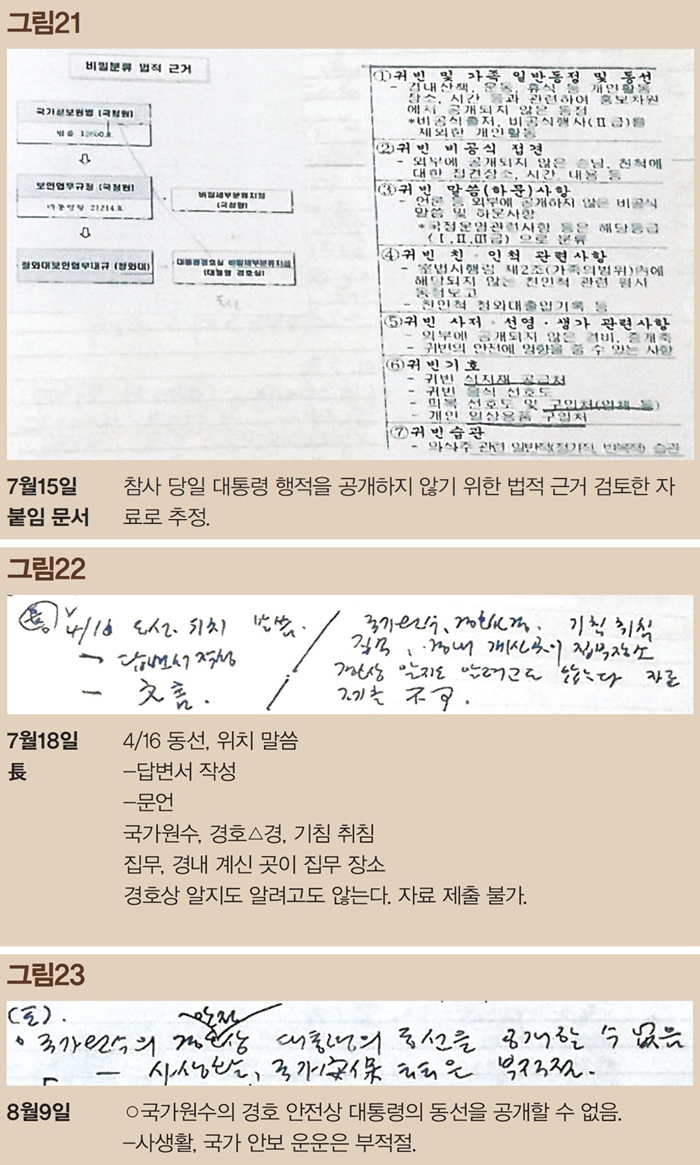 그림21
비밀분류 법적 근거
국가정보원법 (국정원)
법률 12600호
보안업무규정 (국정원)
대통령령 21214호
비밀세부분류지침
(국정원)
청와대보안업무내규 (청와대)
대통령경호실 비밀세부분류지침
(대통령 경호실)
①귀빈 및 가족 일반동정 및 동선
- 경내산책, 운동, 휴식 등 개인활동
장소, 시간 등과 관련하여 홍보차원
에서 공개되지 않은 동정
*비공식출저, 비공식행사(Ⅱ급)를
제외한 개인활동
②귀빈 비공식 접견
- 외부에 공개되지 않은 손님, 친척에
대한 접견장소, 시간, 내용 등
③귀빈 말씀(하문)사항
- 언론 등 외부에 공개하지 않은 비공식
말씀 및 하문사항
*국정운영관련사항 등은 해당등급
(Ⅰ,Ⅱ,Ⅲ급) 으로 분류
④귀빈 친·인척 관련사항
- 동법시행령 제2조(가족의범위)속에
해당되지 않는 친인척 관련 평시
동정보고
- 친인척 청와대출입기록 등
⑤귀빈 사저·선영·생가 관련사항
- 외부에 공개되지 않은 경비, 증개축
- 귀빈의 안전에 영향을 줄 수 있는 사항
⑥귀빈기호
- 귀빈 식자재 공급처
- 귀빈 음식 선호도
- 의복 선호도 및 구입처(업체 등)
- 개인 일상용품 구입처
⑦귀빈습관
- 의식주 관련 일반적(정기적, 반복적) 습관
7월15일
붙임 문서
참사 당일 대통령 행적을 공개하지 않기 위한 법적 근거 검토한 자
료로 추정.
그림22
長 4/16 동선. 위치 말씀.
- 답변서 작성
- 文言.
국가원수, 경호 경. 기침 취침
집무, 경내 계신 곳이 집무장소
경호상 알지도 알려고도 않는다 자료
제출 不可.
7월18일
長
4/16 동선, 위치 말씀
–답변서 작성
–문언
국가원수, 경호△경, 기침 취침
집무, 경내 계신 곳이 집무 장소
경호상 알지도 알려고도 않는다. 자료 제출 불가.
그림23
(토).
안전
◦국가원수의 경호상 대통령의 동선을 공개할 수 없음
- 사생활, 국가安保 云云은 부적절.
8월9일
○국가원수의 경호 안전상 대통령의 동선을 공개할 수 없음.
–사생활, 국가 안보 운운은 부적절.